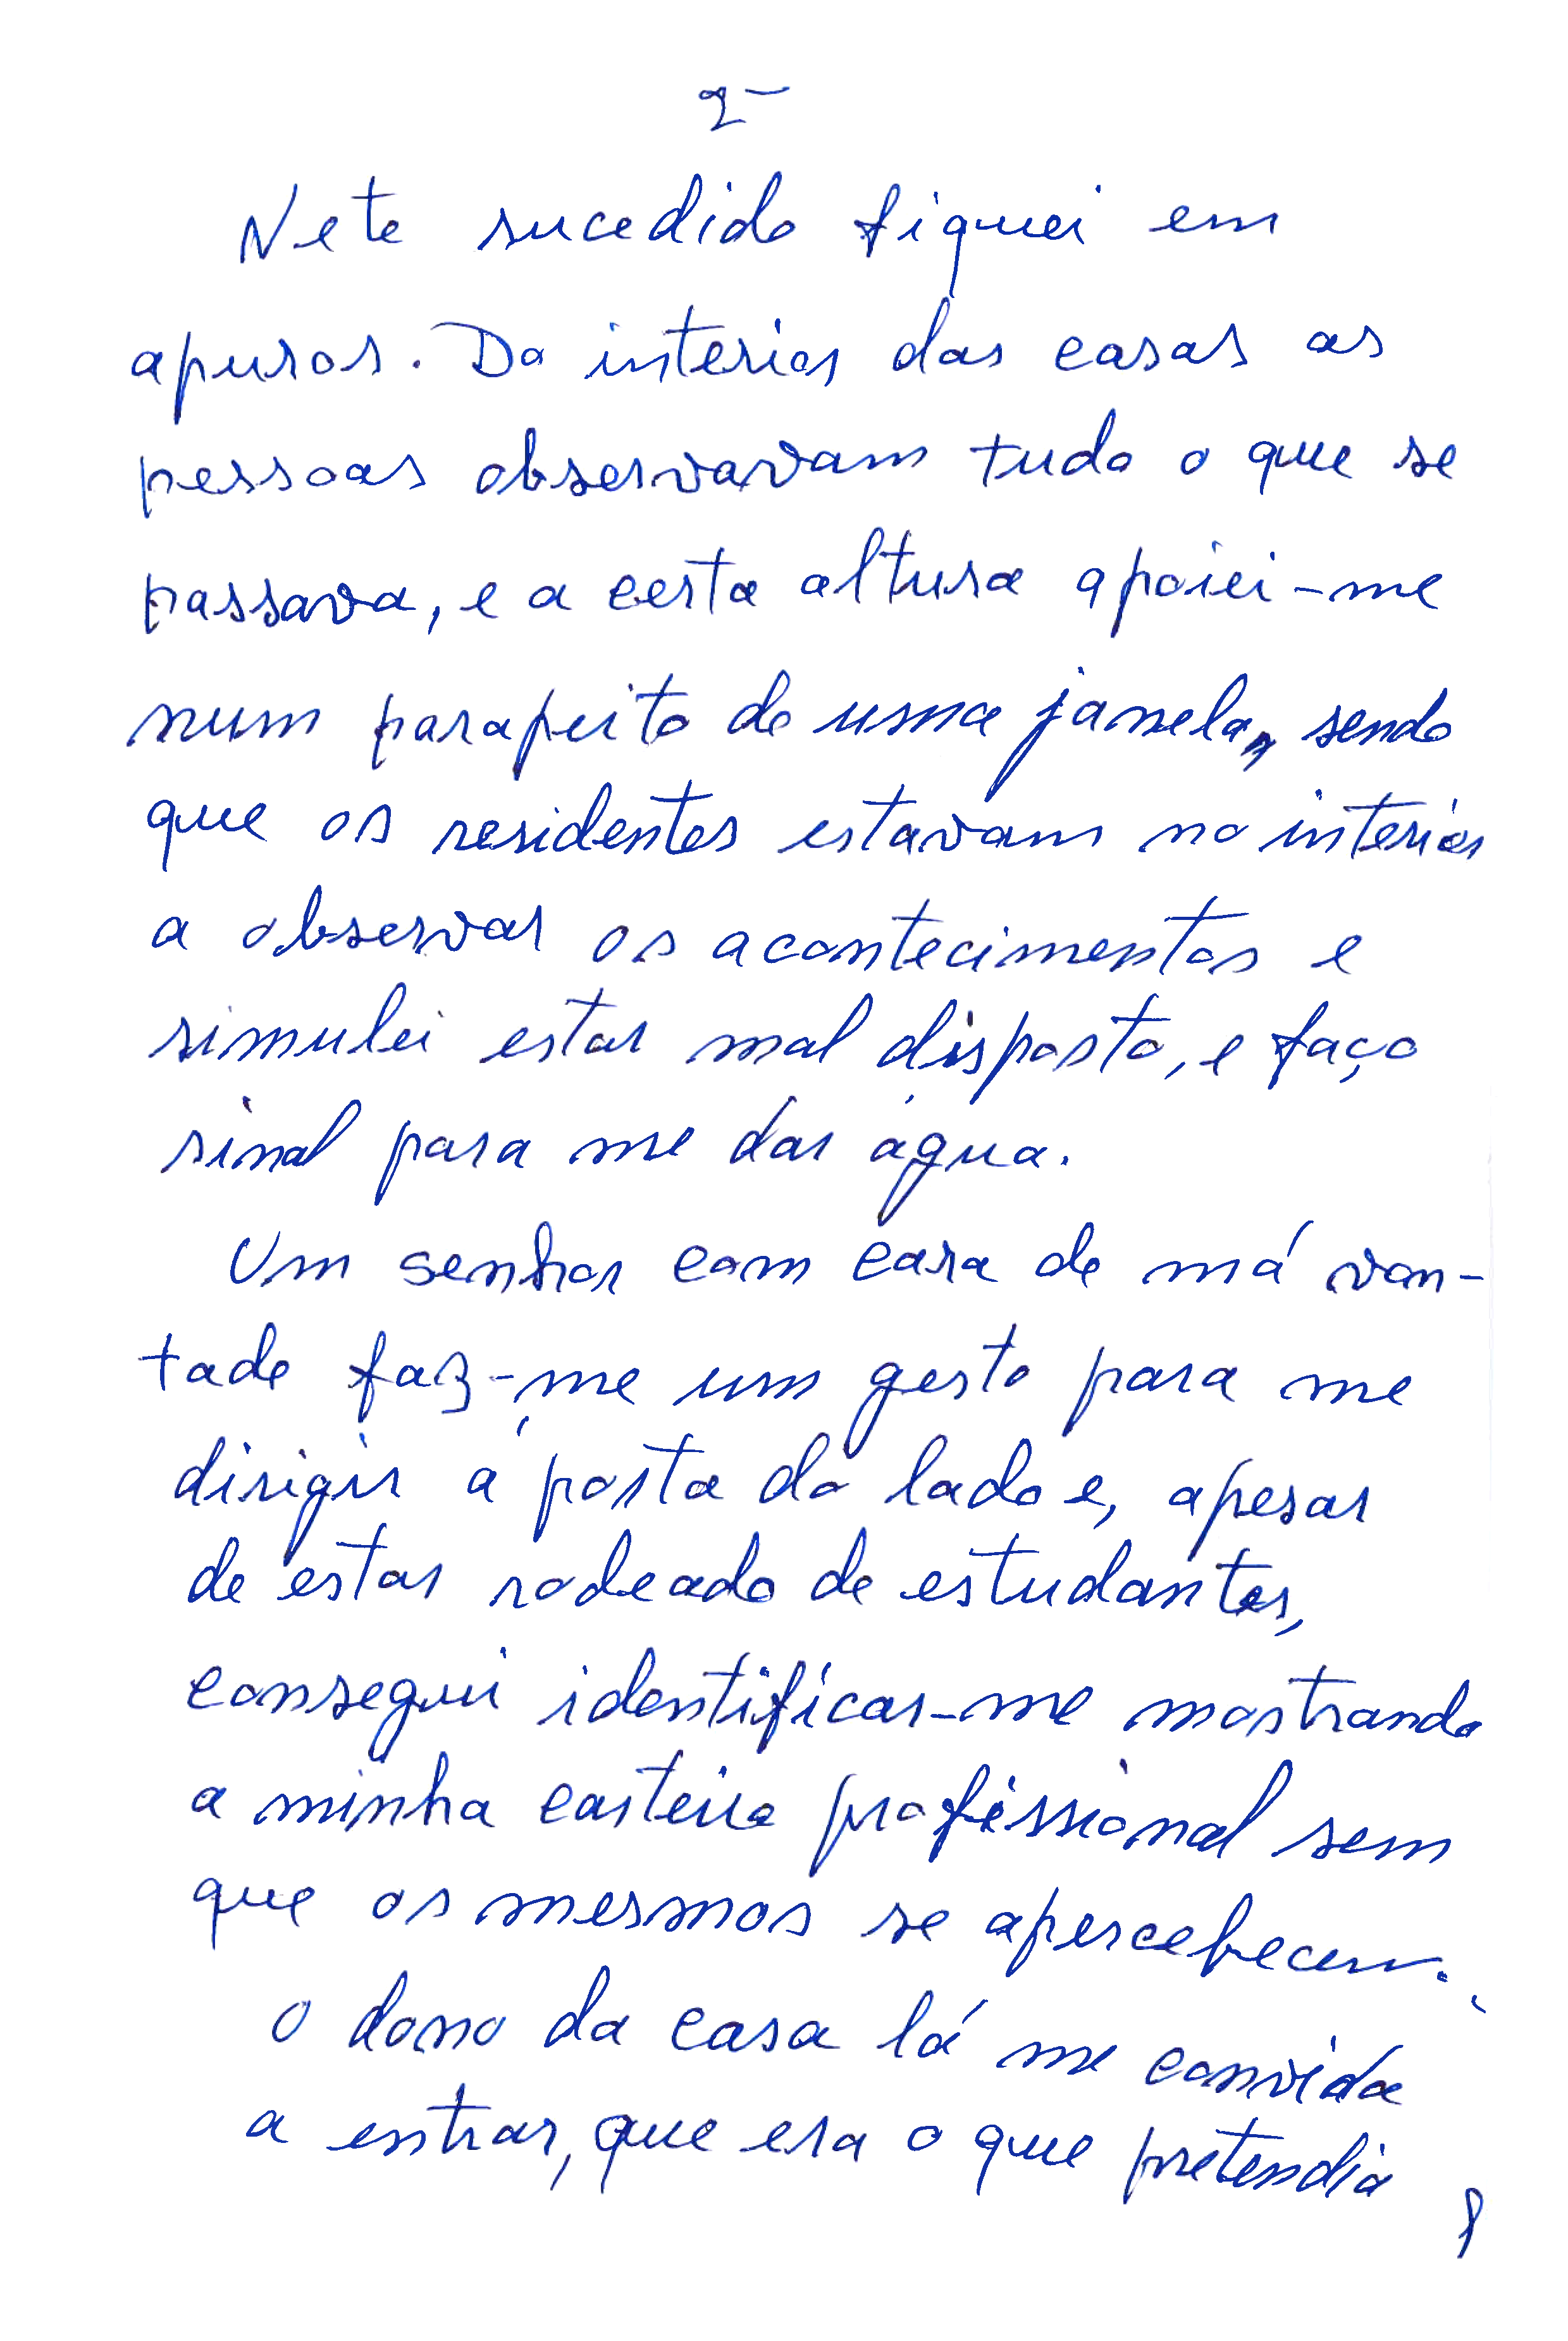 2-
Nete sucedido fiquei em
apuros. Do interior das casas as
pessoas observavam tudo o que se
passava, e a certa altura apoiei-me
num parapeito de uma janela, sendo
que os residentes estavam no interior
a observar os acontecimentos e
simulei estar mal disposto, e faço
sinal para me dar água.
Um senhor com cara de má von-
tade faz-me um gesto para me
dirigir à porta do lado e, apesar
de estar rodeado de estudantes,
consegui identificar-me mostrando
a minha carteira profissional sem
que os mesmos se apercebecem.
O dono da casa lá me convida
a entrar, que era o que pretendia